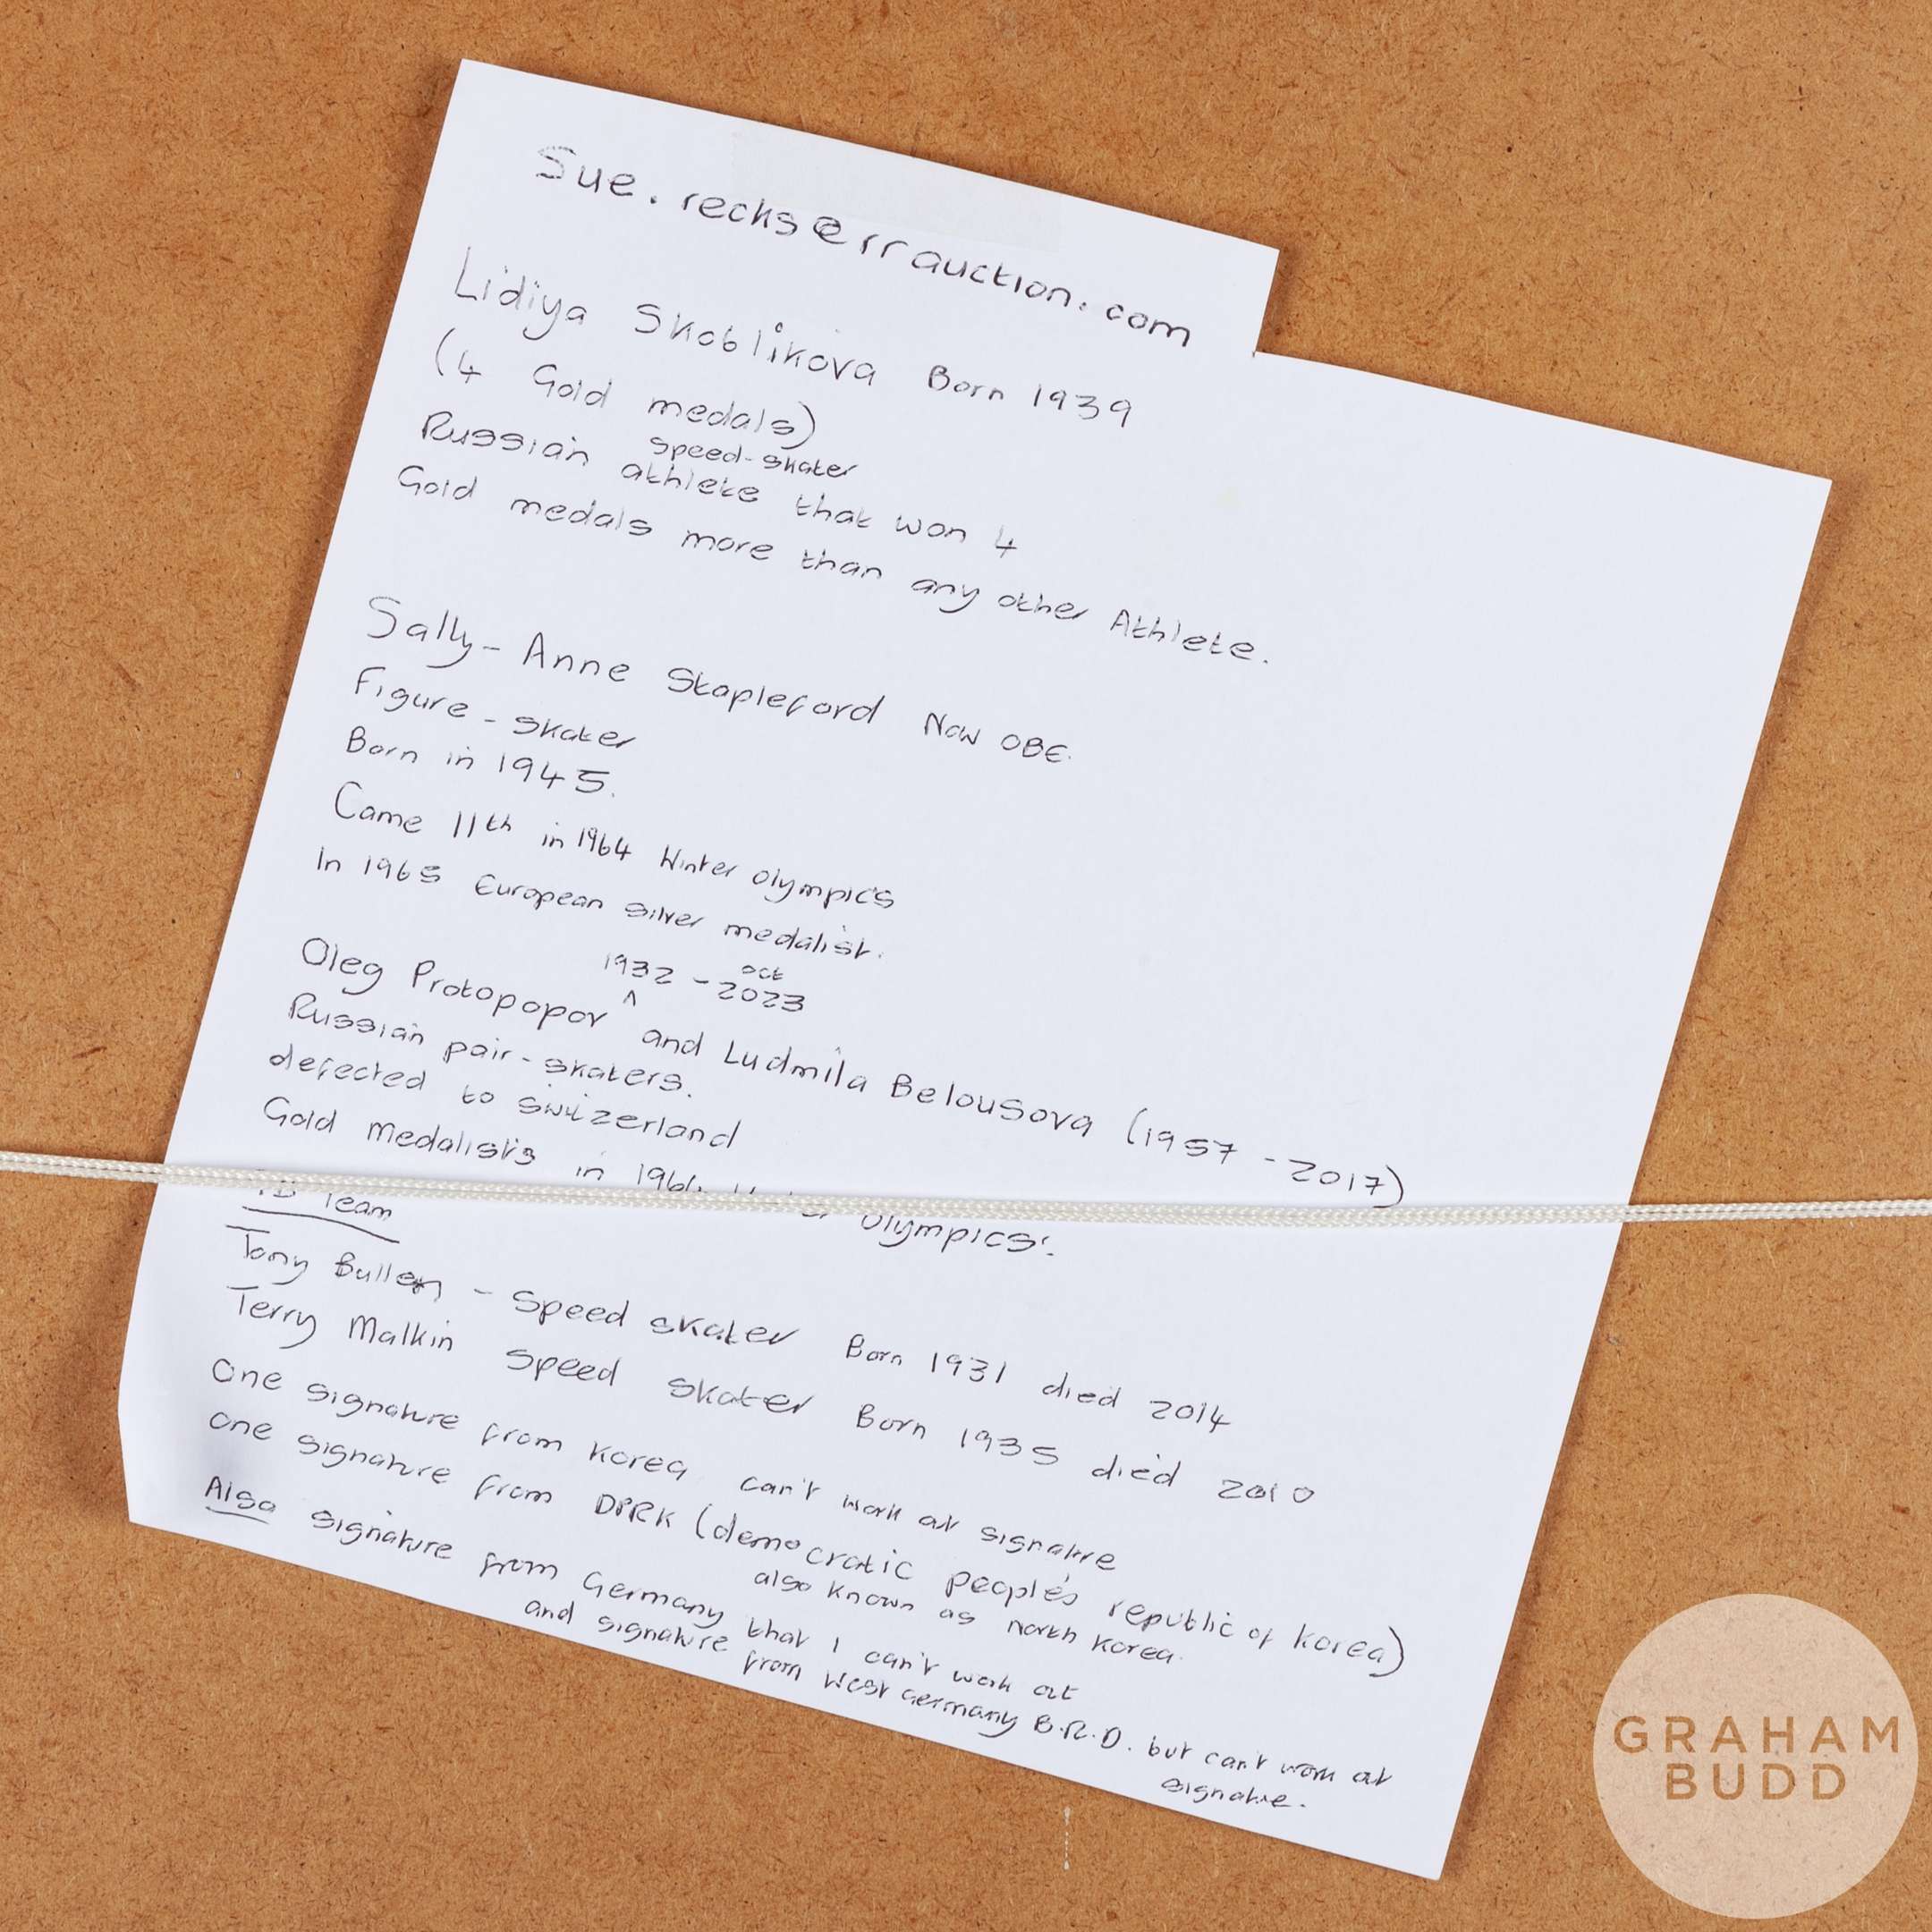 Sue.recks@rrauction.com
Lidiya Skoblikova Born 1939
(4 Gold medals)
speed-skater
Russian athlete that won 4
Gold medals more than any other Athlete.
Sally-Anne Stapleford Now OBE.
Figure-skater
Born in 1945.
Came 11th in 1964 Winter olympics
In 1965 European silver medalist.
1932 - oct 2023
Oleg Protopopov ^ and Ludmila Belousova (1957 - 2017)
Russian pair-skaters.
defected to switzerland
Gold medalists in 1964 olympics.
Team
Tony Bullen - Speed skater Born 1931 died 2014
Terry Malkin Speed skater Born 1935 died 2010
One signature from Korea can't work out signature
one signature from DPRK (democratic people's republic of Korea)
also known as north Korea.
Also signature from Germany that I can't work out
and signature from West Germany B.R.D. but can't work out
signature.
GRAHAM
BUDD